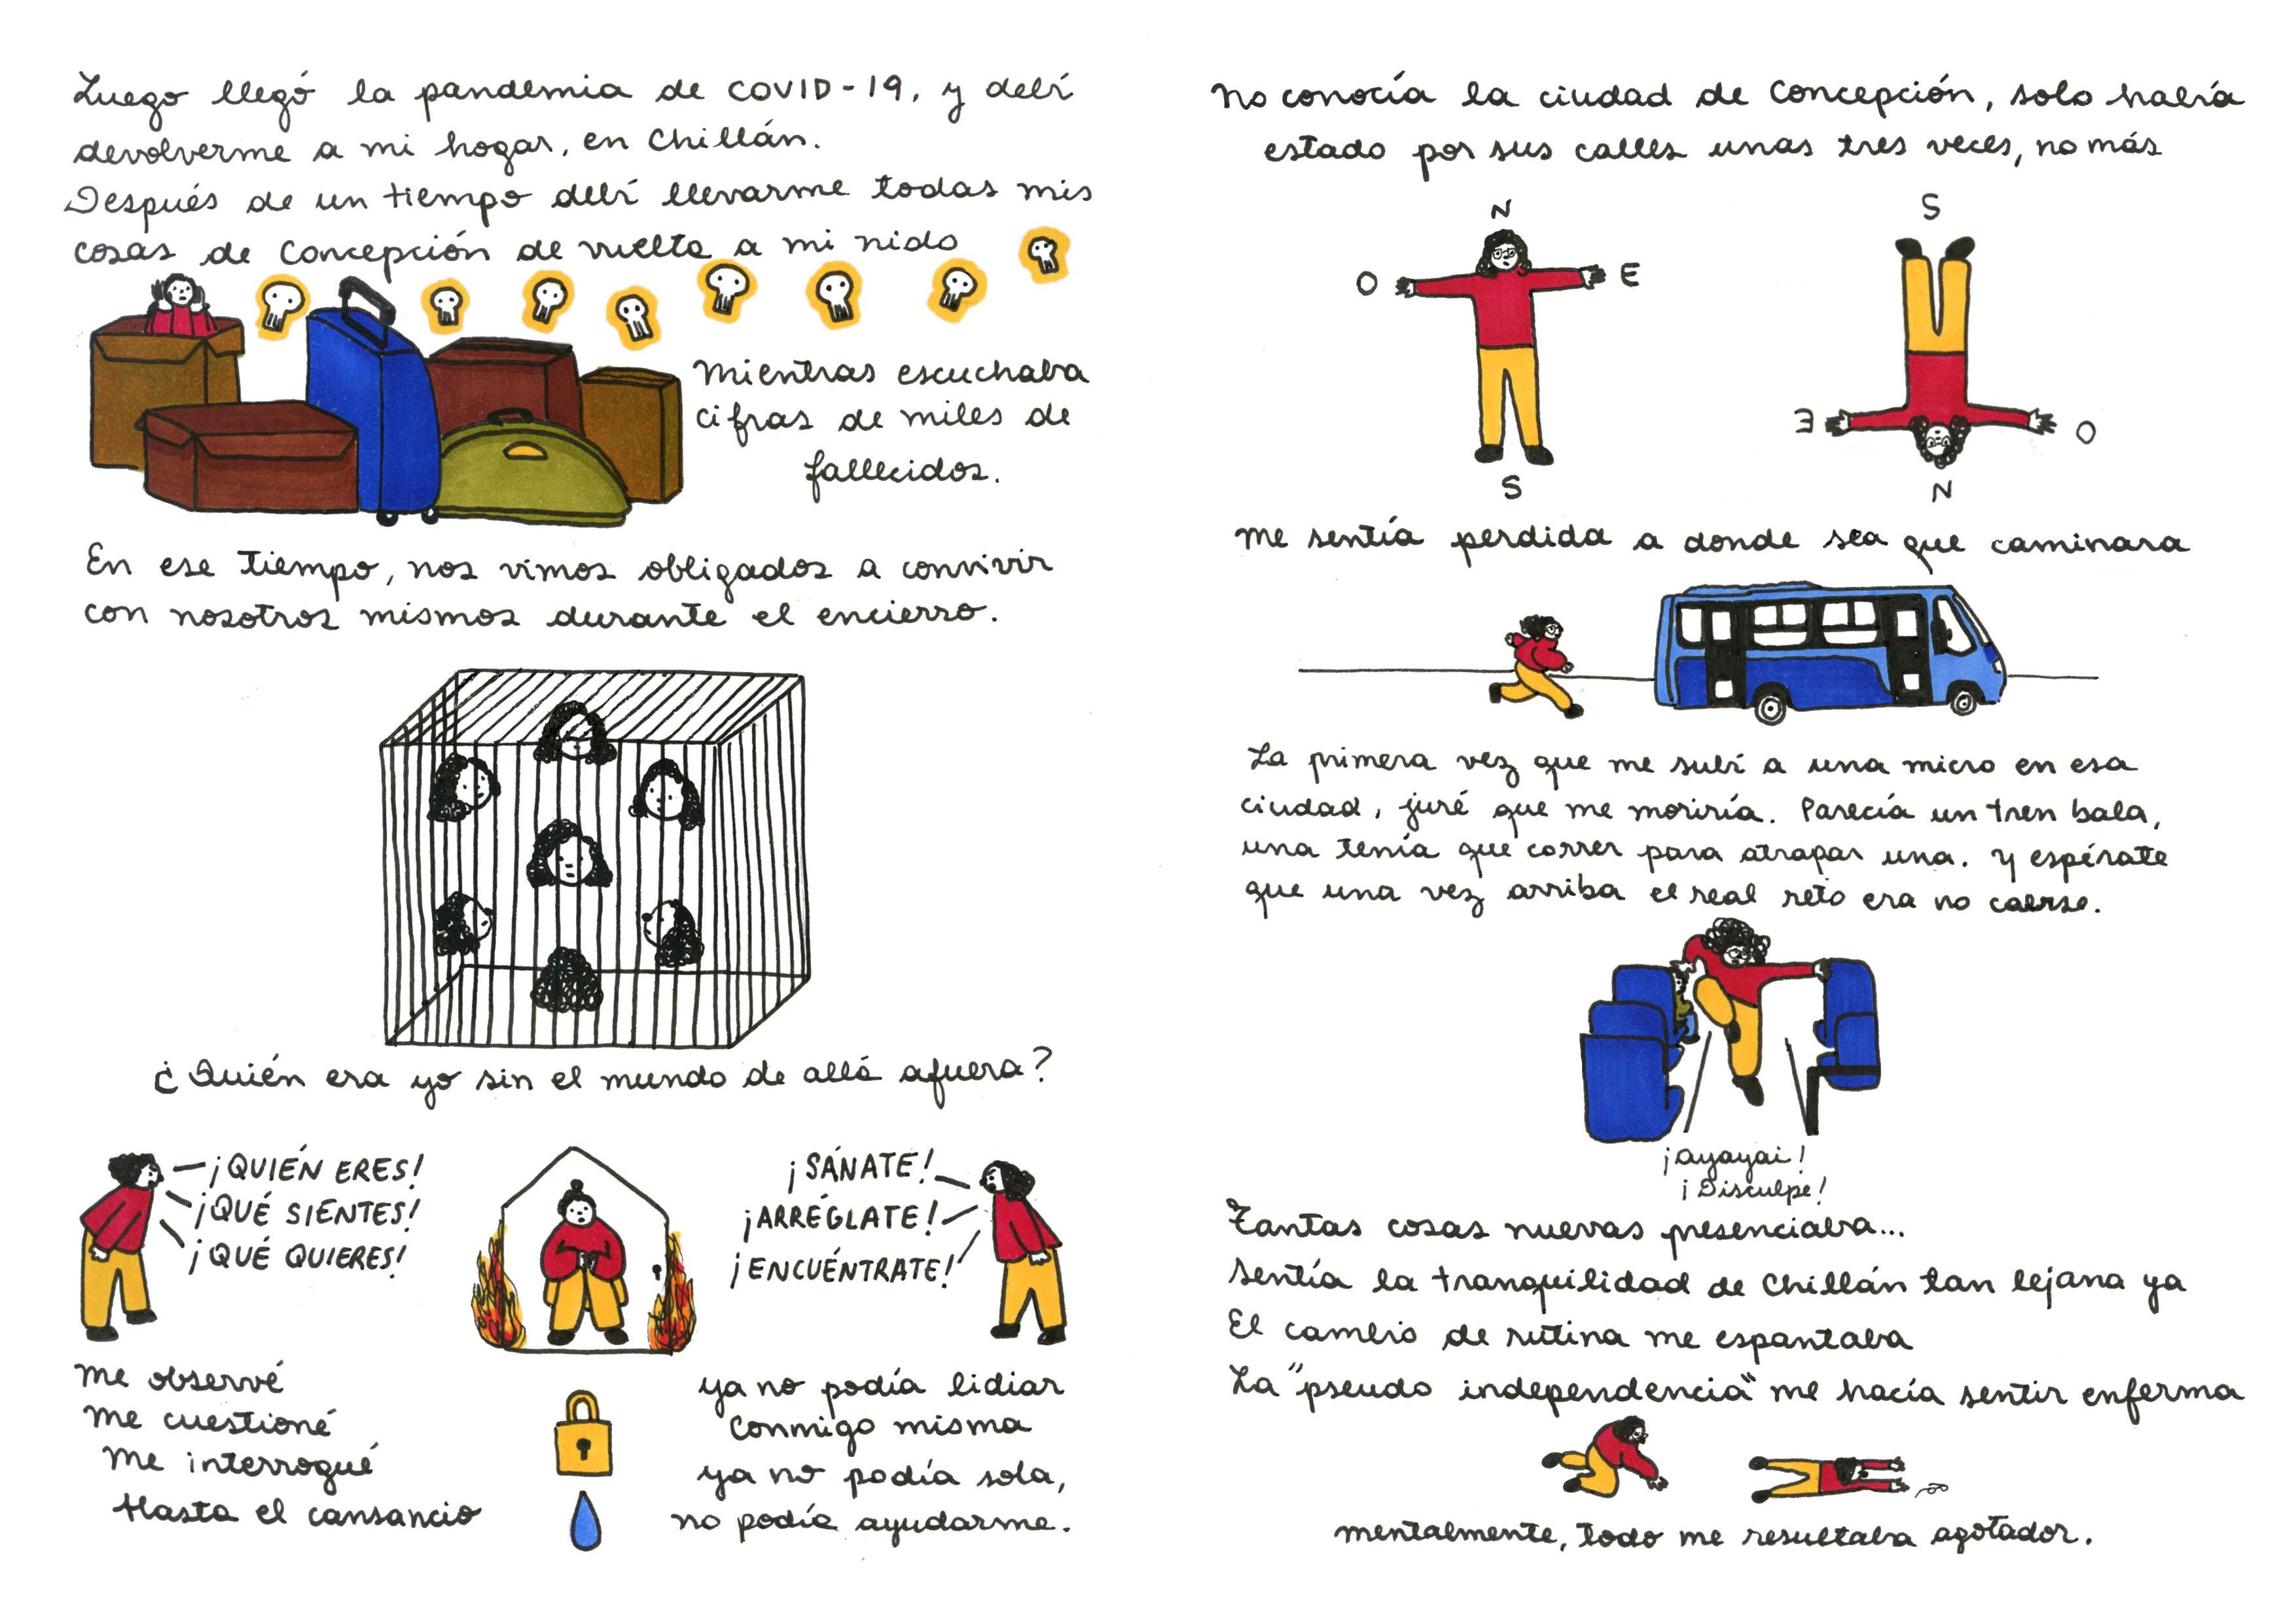 Luego llegó la pandemia de COVID-19, y debí
devolverme a mi hogar, en Chillán.
Después de un tiempo debí llevarme todas mis
cosas de Concepción de vuelta a mi nido
Mientras escuchaba
cifras de miles de
fallecidos.
En ese tiempo, nos vimos obligados a convivir
con nosotros mismos durante el encierro.
¿Quién era yo sin el mundo de allá afuera?
¡QUIÉN ERES!
¡QUÉ SIENTES!
¡QUÉ QUIERES!
¡SÁNATE!
¡ARRÉGLATE!
¡ENCUÉNTRATE!
Me observé
Me cuestioné
Me interrogué
Hasta el cansancio
ya no podía lidiar
conmigo misma
ya no podía sola,
no podía ayudarme.
No conocía la ciudad de Concepción, solo había
estado por sus calles unas tres veces, no más
N
O E
S
S
E O
N
Me sentía perdida a donde sea que caminara
La primera vez que me subí a una micro en esa
ciudad, juré que me moriría. Parecía un tren bala,
una tenía que correr para atrapar una. Y espérate
que una vez arriba el real reto era no caerse.
¡Ayayai!
¡Disculpe!
Tantas cosas nuevas presenciaba...
Sentía la tranquilidad de Chillán tan lejana ya
El cambio de rutina me espantaba
La "pseudo independencia" me hacía sentir enferma
mentalmente, todo me resultaba agotador.